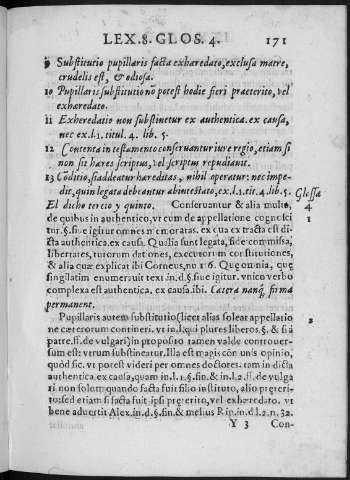 LEX.8. GLOS. 4. 171
9 Substitutio pupillaris facta exharedato, exclusa matre,
crudelis est, & odiosa.
10 Pupillaris substitutio nõ potest hodie fieri praeterito, vel
exharedato.
11 Exheredatio non substinetur ex authentica. ex causa,
nec ex.l.1. titul. 4. lib. 5.
12 Contenta in testamento conservantur iure regio, etiam si
non sit hares scriptus, vel scriptus repudiauit.
13 Cõditio, si addeatur hareditas, nihil operatur: nec impe-
dit, quin legata debeantur abintestato, ex.l.1.tit.4.lib.5.
Glossa
El dicho tercio y quinto. Conseruantur & alia multo,
4
de quibus in authentico, vt cum de appellatione cognosci
1
tur. §. siue igitur omnes memoratas. ex qua extracta est di-
cta authentica. ex causa. Qualia sunt legata, fideicommissa,
libertates, tutorum dationes, executorum constitutiones,
& alia quæ explicat ibi Corneus, no 116. Quę omnia, quę
singilatim enumerauit text in.d.§. siue igitur. vnico verbo
complexa est authentica. ex causa. ibi. Cætera nanq, firma
permanent.
Pupillaris autem substitutio (licet alias soleat appellatio
2
ne cæterorum contineri. vt in l. qui plures liberos. §. & si à
patre. ff. de vulgari) in proposito tamen valde controuer-
sum est: vtrum substineatur. Illa est magis cõmunis opinio,
quòd sic. vt potest videri per omnes doctores. tam in dicta
authentica. ex causa, quam in.l.1.§. fin. & in.l.2. ff. de vulga
ri non solum quando facta fuit filio instituto, alio pręteri-
to: sed etiam si facta fuit ipsi pręterito, vel exhæredato. vt
bene aduertit Alex. in.d.§. fin. & melius Rip. in d.l.2.n.32.
Y 3 Con-